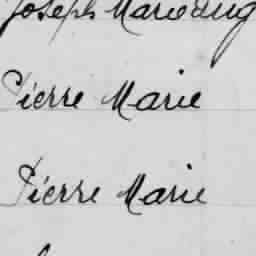 Joseph Marie Aug
Pierre Marie
Pierre Marie